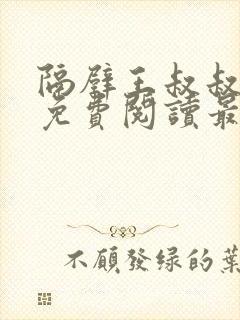 隔壁王叔叔
免費閱讀最
不願發绿的葉